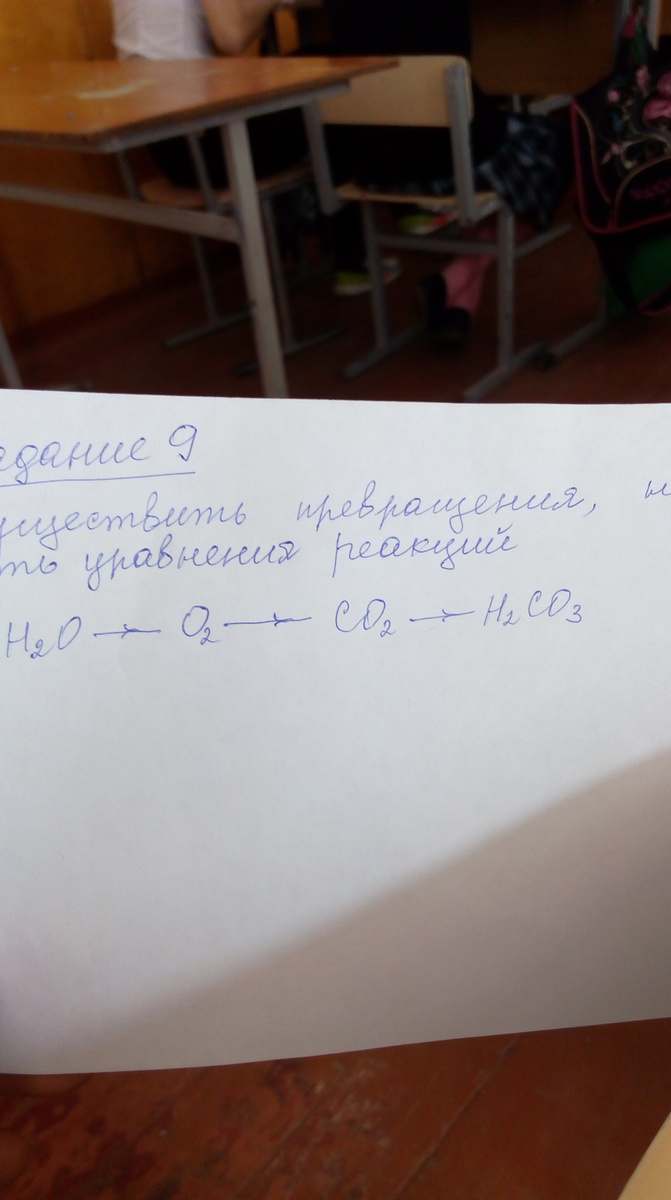 адание 9
уществить превращения, н
ть уравнения реакций
H₂O → O₂ → CO₂ → H₂CO₃